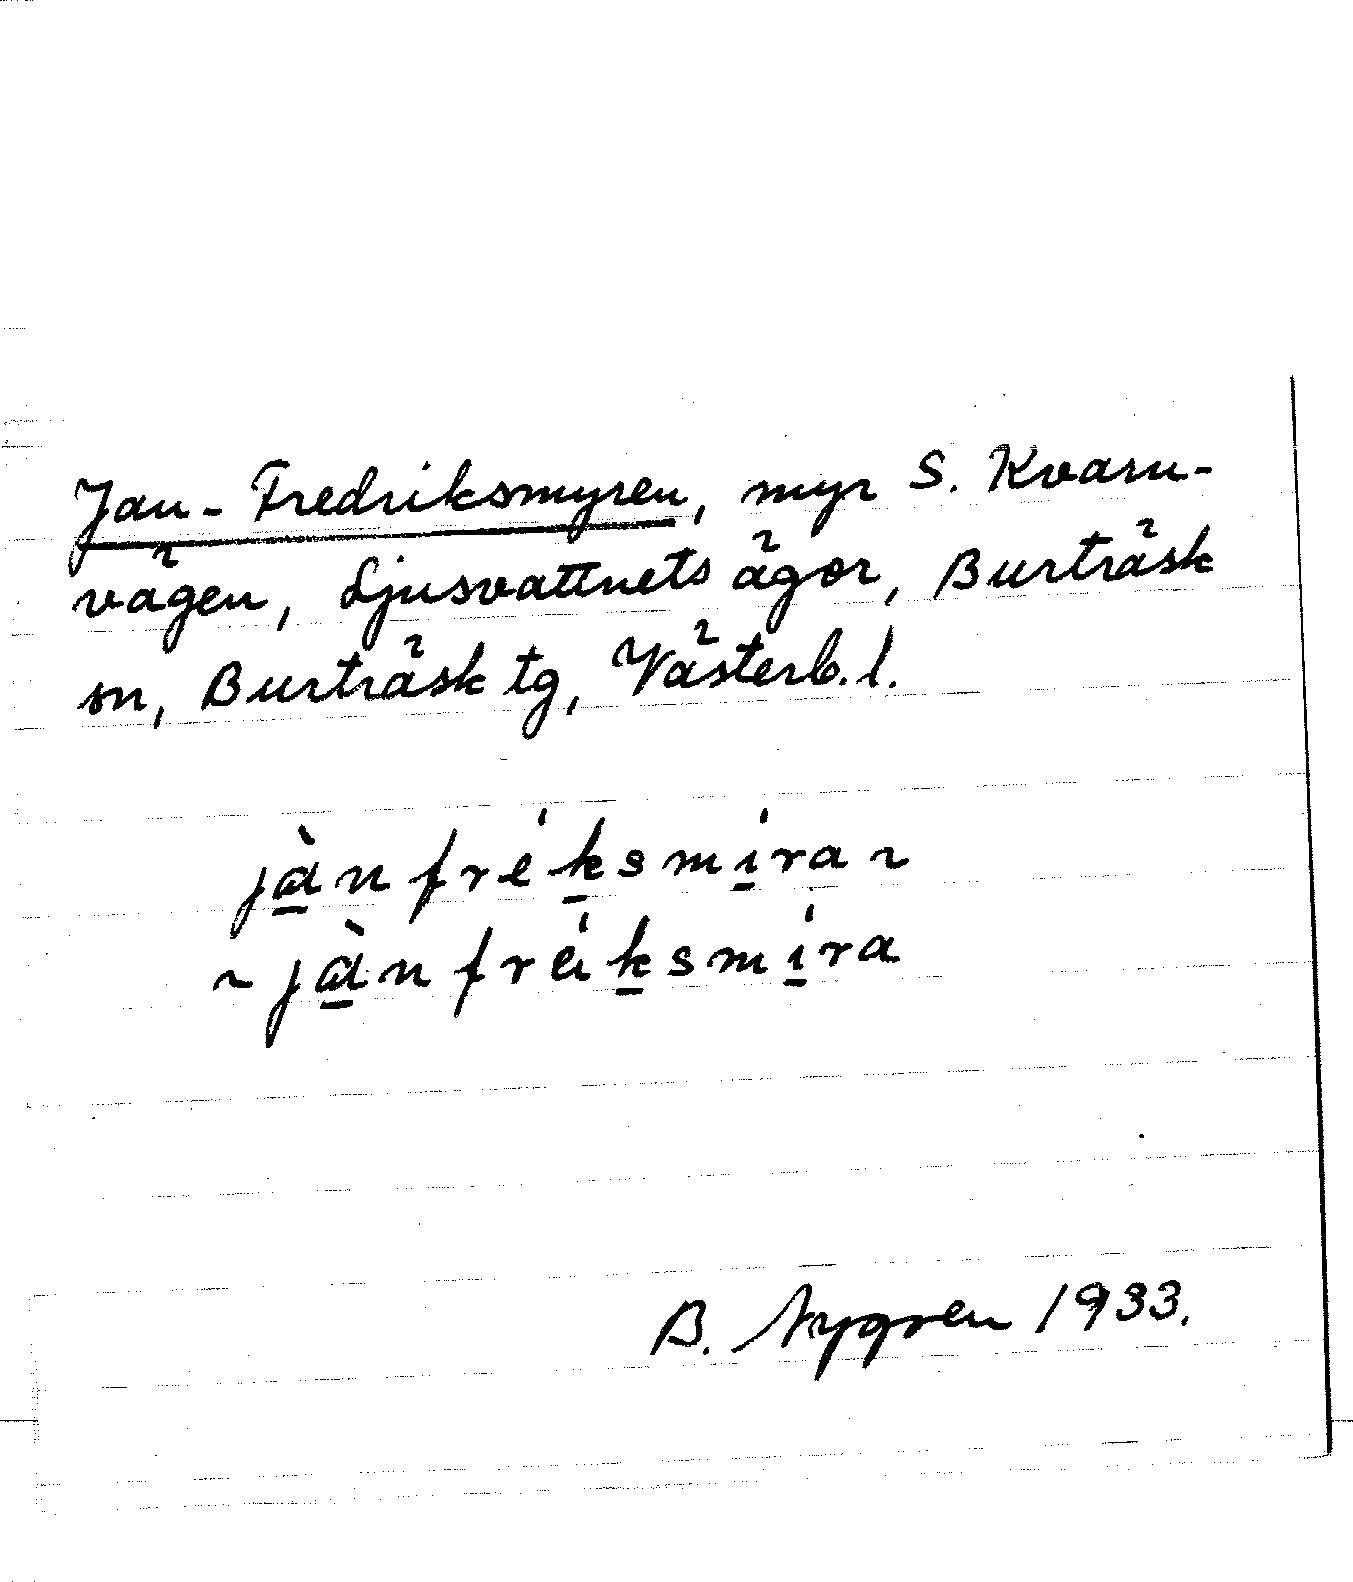 Jan-Fredriksmyren, myr S. Kvarn-
vägen, Ljusvattnets ägor, Burträsk
sn, Burträsk tg, Västerb. l.
jànfréksmíra ~
~ jànfréiksmíra
B. Nygren 1933.